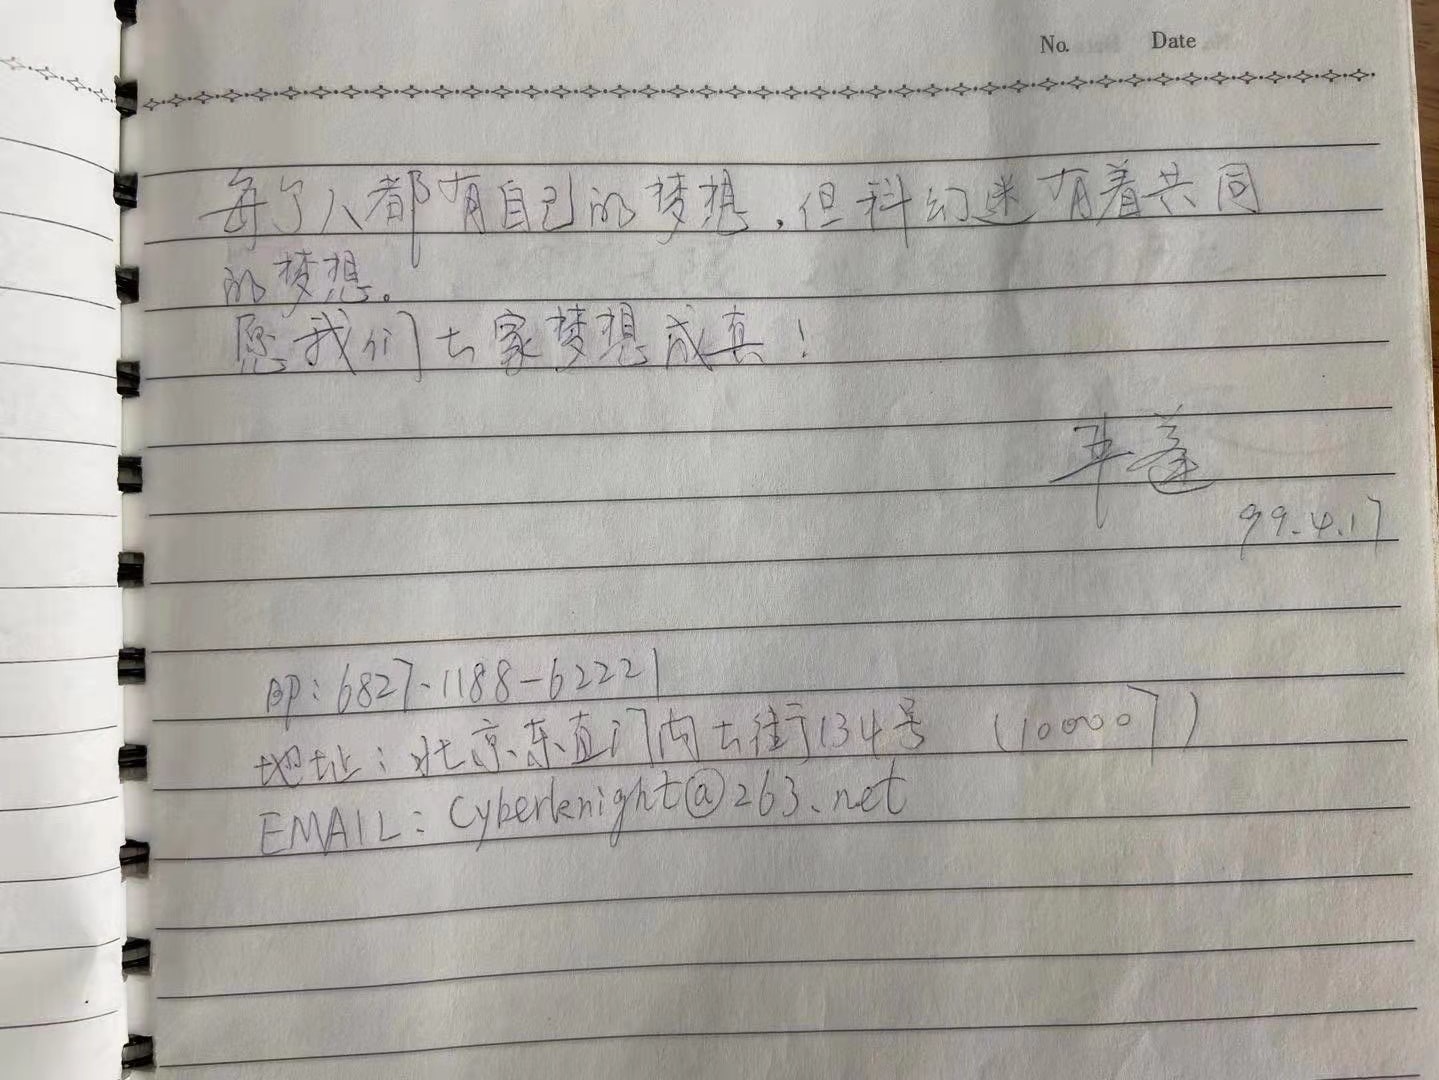 No. Date
每个人都有自己的梦想,但科幻迷有着共同
的梦想。
愿我们大家梦想成真!
99.4.17
BP: 6827-1188-62221
地址: 北京东直门内大街134号 (100007)
EMAIL: Cyberknight@263.net